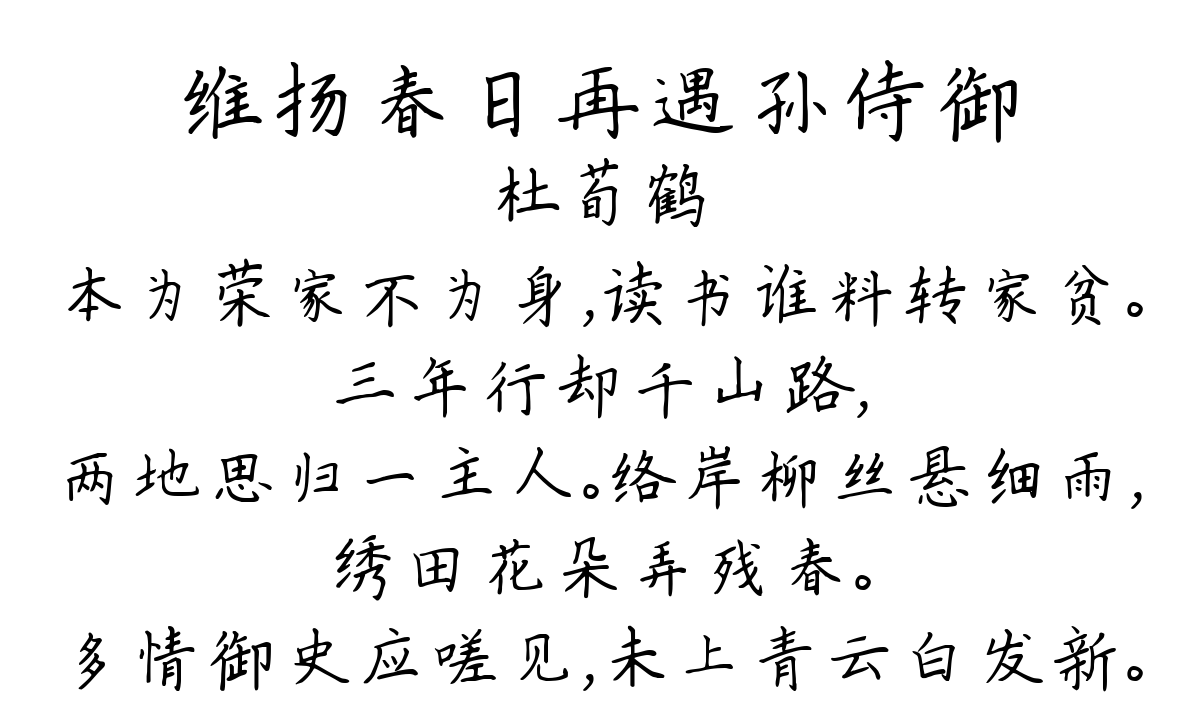 维扬春日再遇孙侍御
杜荀鹤
本为荣家不为身,读书谁料转家贫。
三年行却千山路,
两地思归一主人。络岸柳丝悬细雨,
绣田花朵弄残春。
多情御史应嗟见,未上青云白发新。